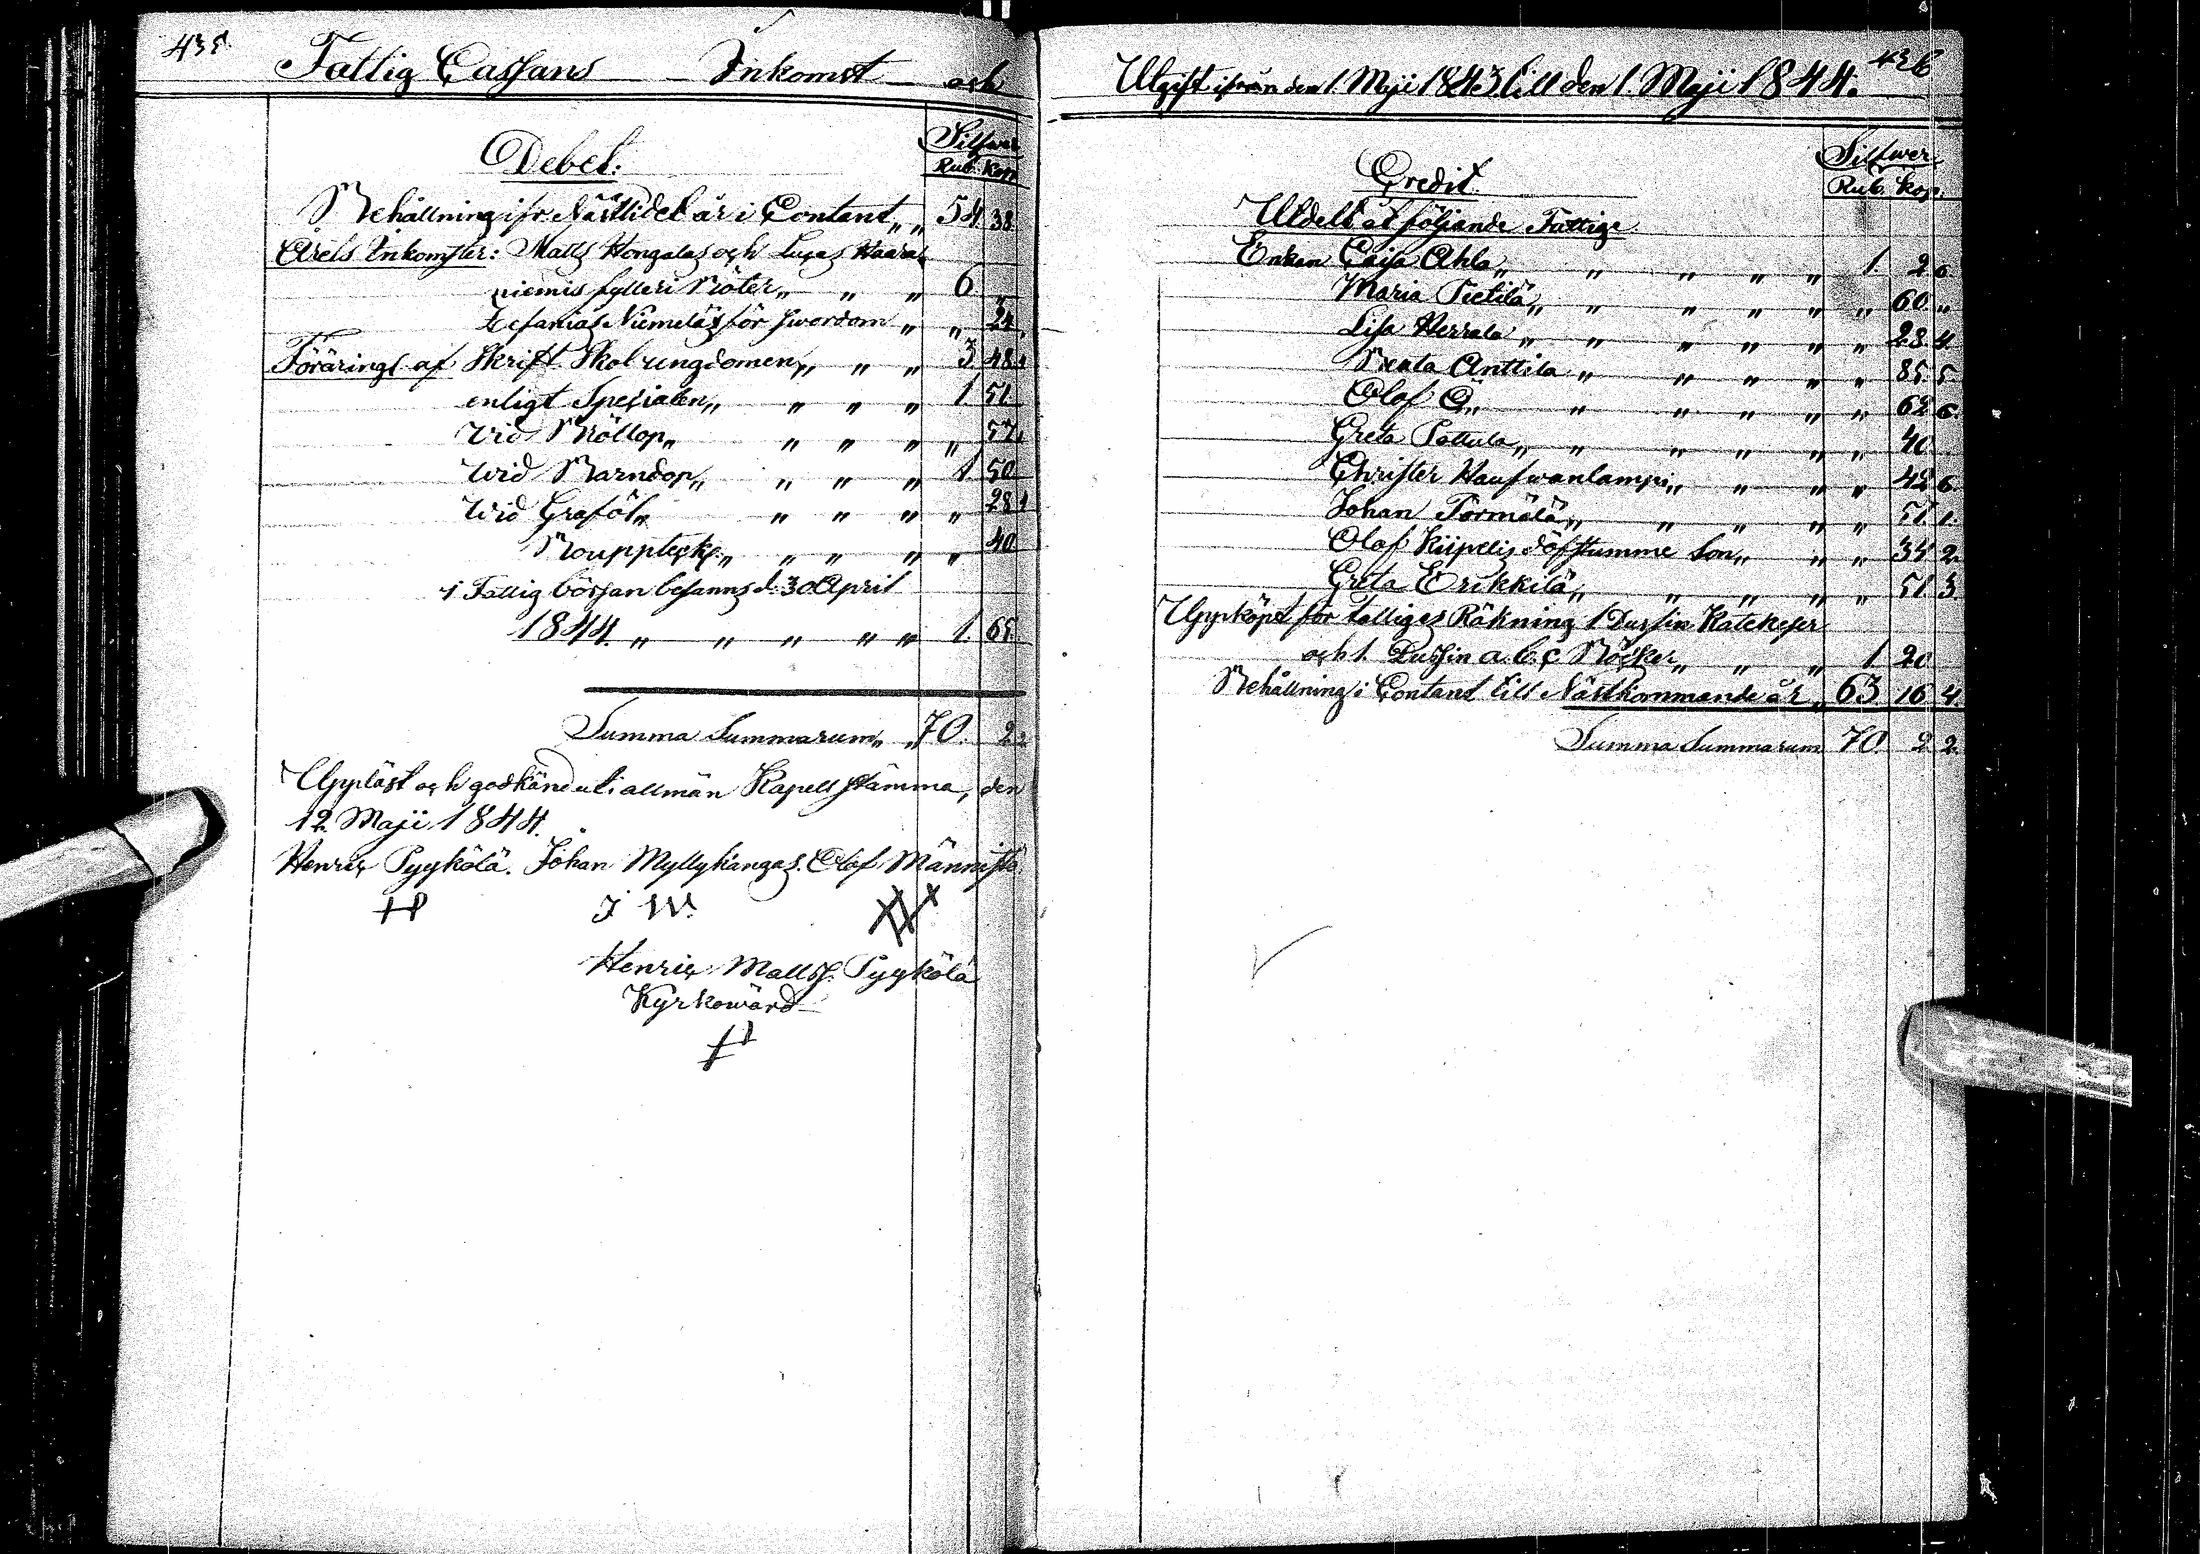 435.
Fattig Cassans Inkomst och
Debet.
Silfwer
Rub. Kop.
Behållning ifr. Nästlidet år i Contant „ „ 54. 38
Årets Inkomster: Matts Hongalas och Lucas Haara
niemis fylleri Böter „ „ „ 6. „
Zefanias Niemeläs för Swordom „ „ 24
Föräringt af Skrift Skol ungdomen „ „ „ 3. 48
enligt Specialen „ „ „ „ 1. 51.
Wid Bröllop „ „ „ „ „ 57.
Wid Barndop „ „ „ „ 1. 50
Wid Graföl „ „ „ „ „ 28
„ „ „ „ 40
i Fattig bössan befanns d. 30 April
1844. „ „ „ „ „ 1. 65.
Summa Summarum „ „ 70. 2
Uppläst och godkänd uti allmän Kapell stämma, den
12. Maji 1844.
Henric Pyykölä. Johan Myllykangas. Olof Männistö
HP J W.
Henric Mattss. Pyykölä
Kyrkowärd
436
Utgift ifrån den 1. Maji 1843 till den 1. Maji 1844.
Credit
Silfwer
Rub. Kop.
Utdelt åt följande Fattige
Enkan Caisa Ahla „ „ „ „ „ 1. 2 6.
Maria Pietilä „ „ „ „ „ „ 60. „
Lisa Herrala „ „ „ „ „ „ 23. 4.
Beata Anttila „ „ „ „ „ 85. 5.
Olof Ö „ „ „ „ „ „ 62 6.
Greta Pattula „ „ „ „ „ „ 40
Christer Haufwanlampi „ „ „ „ 42 6.
Johan Törmälä „ „ „ „ „ 51. 1.
Olof Kiipelis döfstumme Son „ „ „ 34 2.
Greta Erikkilä „ „ „ „ „ 51 3.
Uppköpt för fattiges Räkning 1 Dussin Katekeser
och 1. Dussin a. b. c Böcker „ „ „ 1. 20
Behållning i Contant till Nästkommande år „ 63. 16 4.
Summa Summarum 70. 2 2.